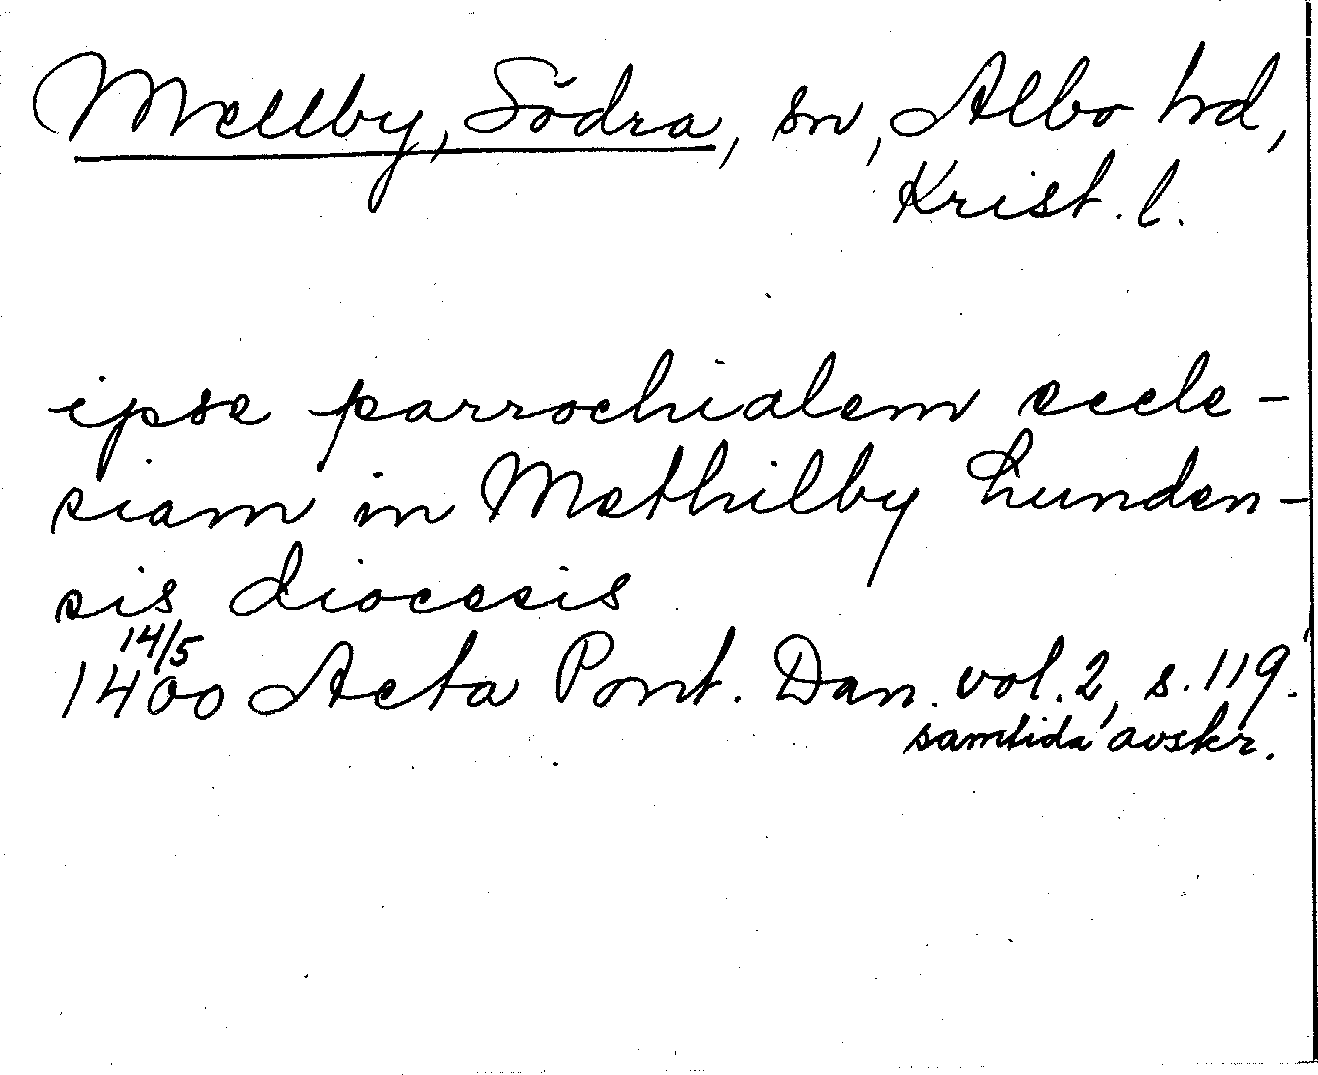 Mellby, Södra, sn, Albo hd,
Krist. l.
ipse parrochialem eccle-
siam in Methilby Lunden-
sis diocesis
14/5
1400 Acta Pont. Dan. vol. 2, s. 119.
samtida avskr.